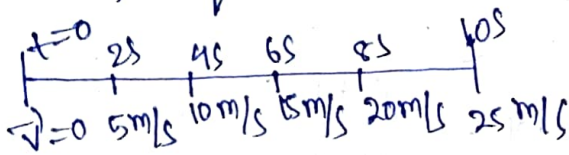 t=0 2S 4S 6S 8S 10S
v⃗=0 5m/s 10m/s 15m/s 20m/s 25m/s